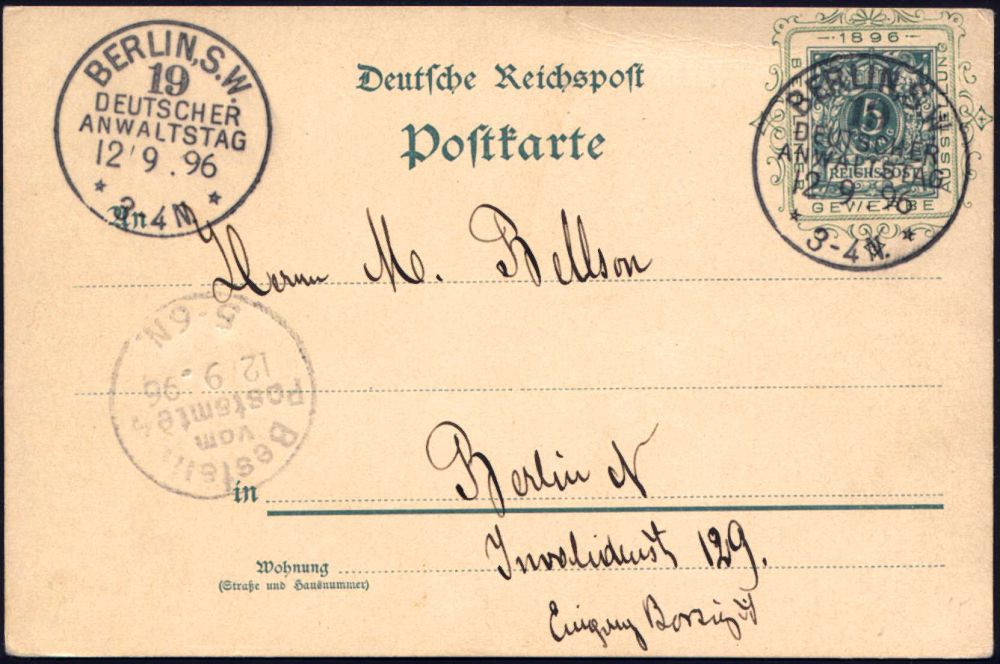 BERLIN, S.W.
19
DEUTSCHER
ANWALTSTAG
12 9. 96
3-4N.
Deutsche Reichspost
Postkarte
1896
BERLINER
5
REICHSPOST
GEWERBE
AUSSTELLUNG
BERLIN, S.W.
DEUTSCHER
ANWALTSTAG
12 9. 96
3-4N.
An
Herrn M. Bellson
5-6N.
12/9. 96
Postamte
vom
Bestellt
in Berlin N
Wohnung
(Straße und Hausnummer)
Invalidenst 129.
Eingang Borsig